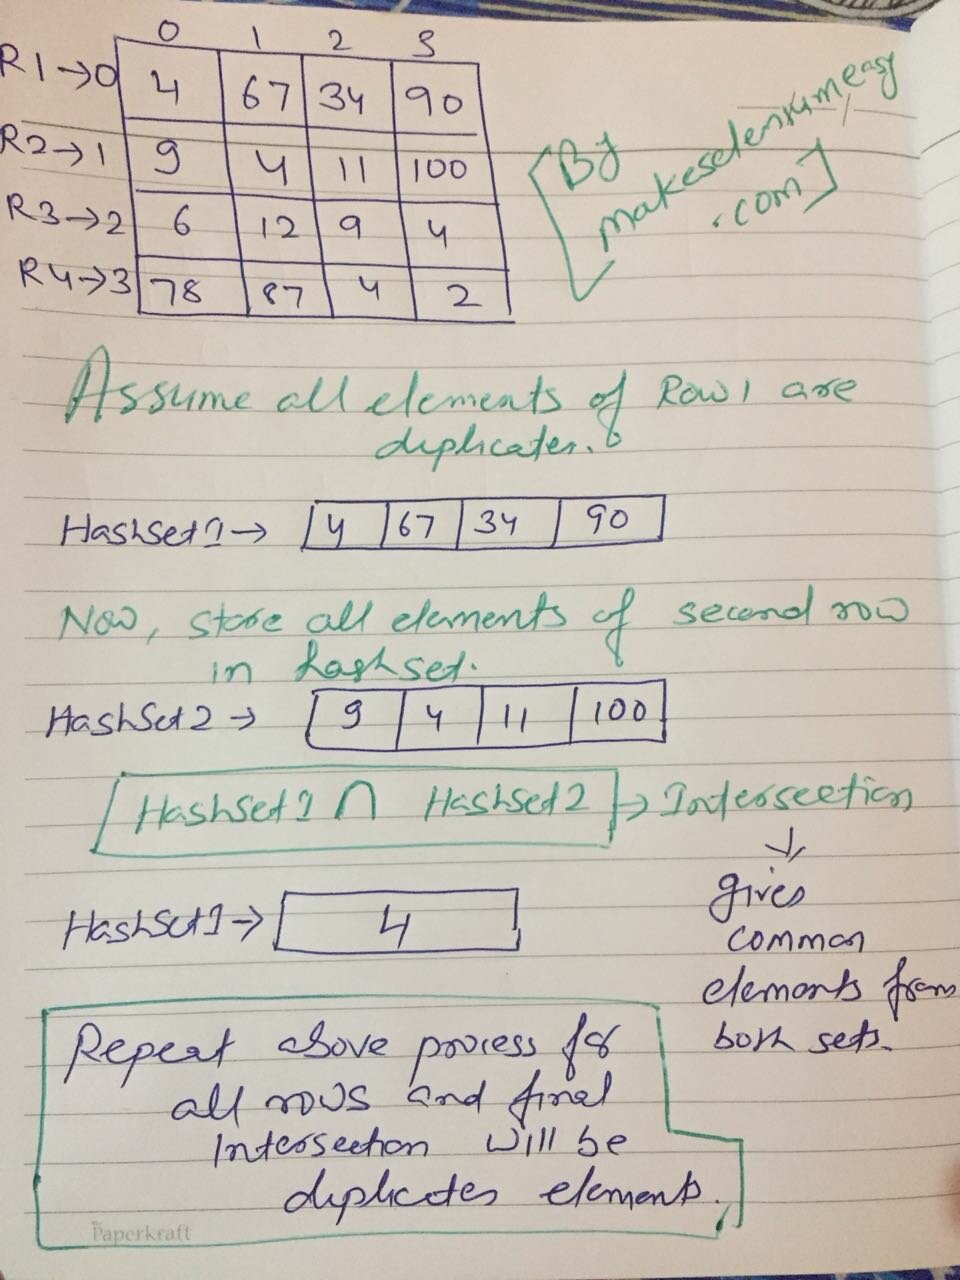 0 1 2 3
R1→0 4 67 34 90
R2→1 9 4 11 100
R3→2 6 12 9 4
R4→3 78 87 4 2
[By
makeseleniumeasy
.com]
Assume all elements of Row 1 are
duplicates.
HashSet1→ 4 67 34 90
Now, store all elements of second row
in hashset.
HashSet2→ 9 4 11 100
HashSet1 ∩ HashSet2 → Intersection
↓
gives
common
elements from
both sets.
HashSet1→ 4
Repeat above process for
all rows and final
Intersection will be
duplicates elements.
Paperkraft